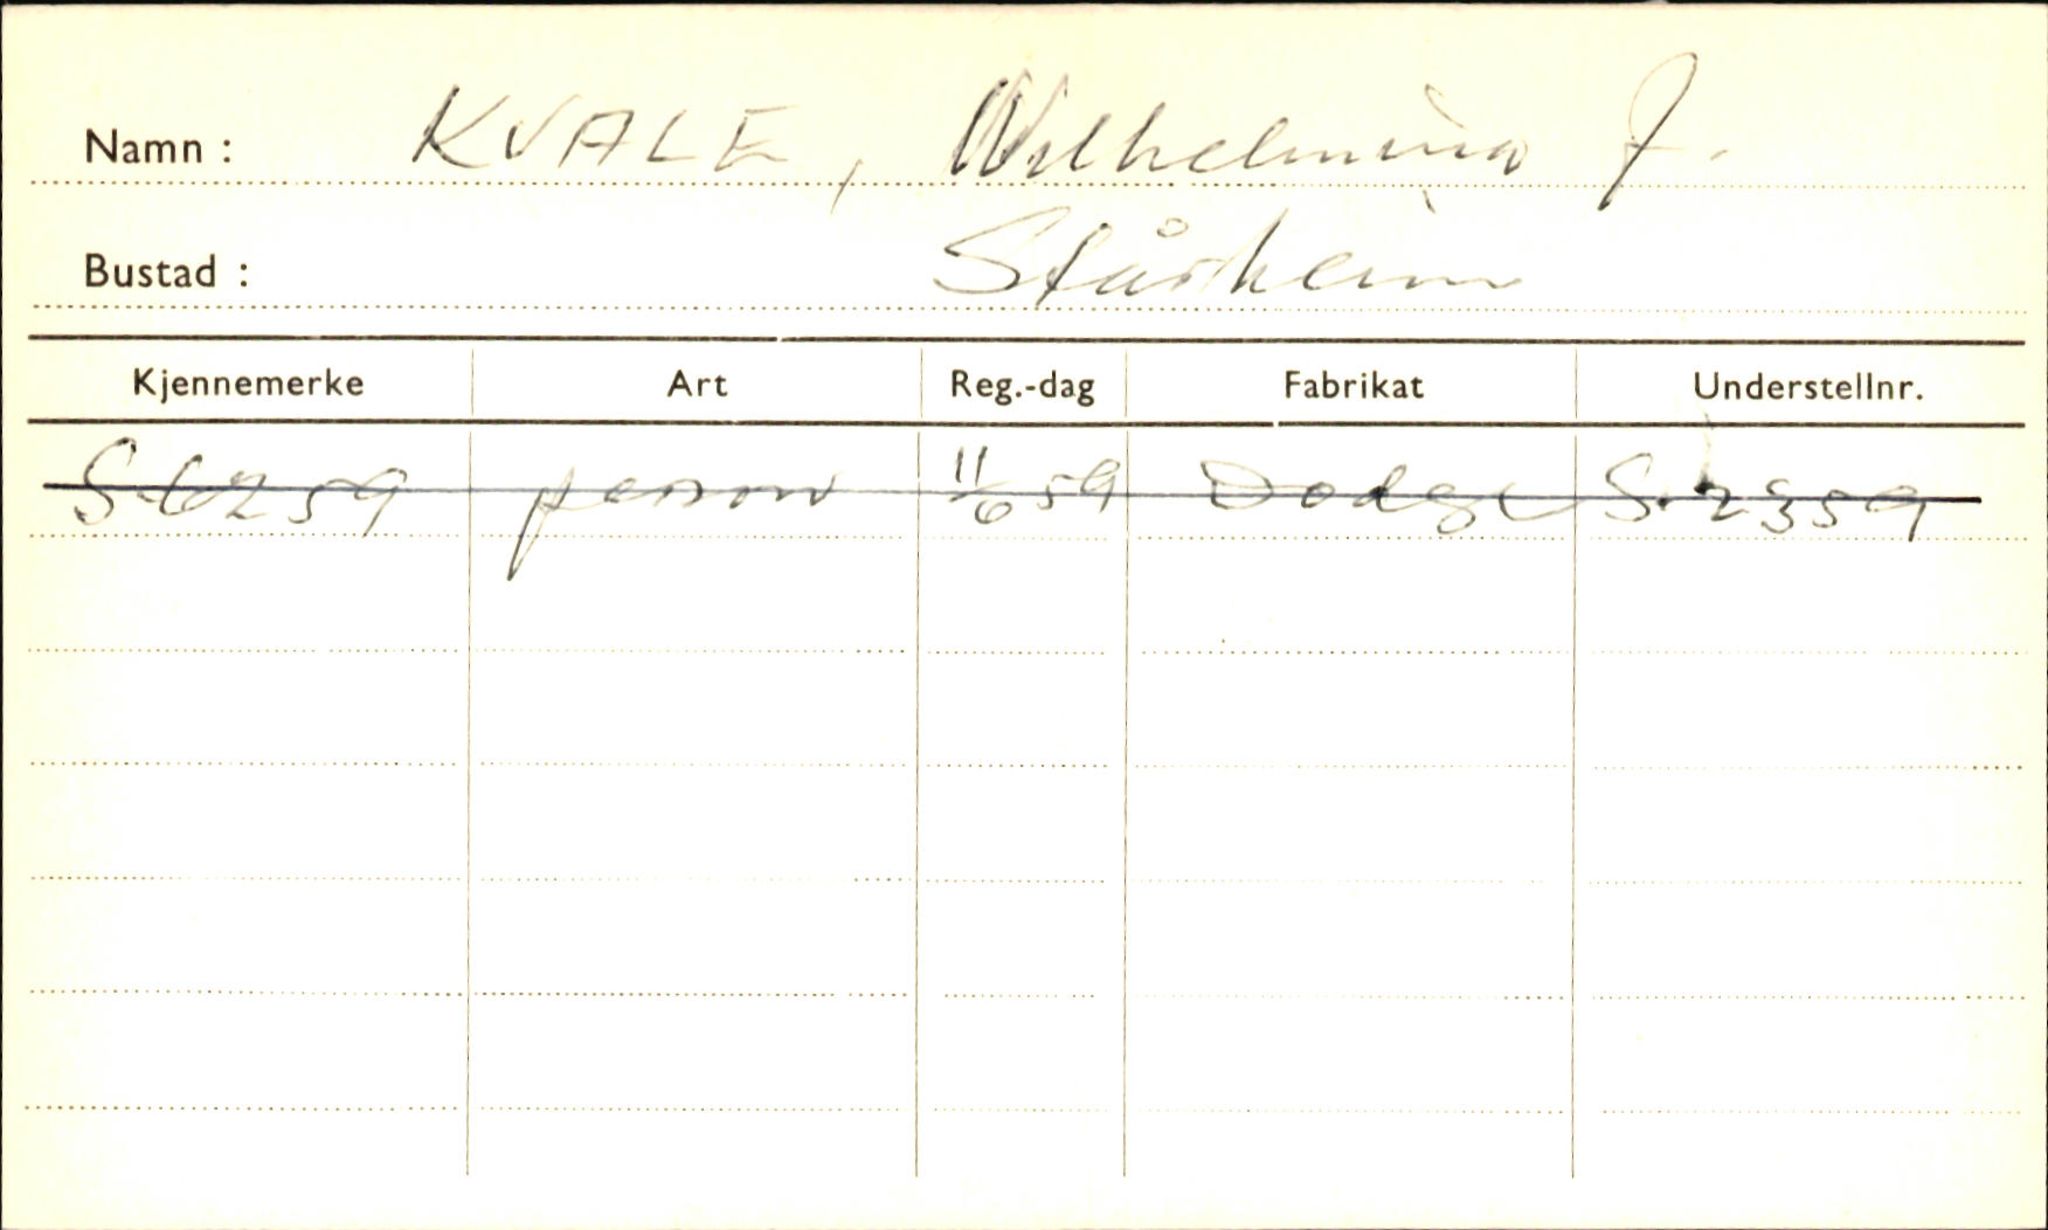 Namn : KVALE, Wilhelmina J.
Bustad : Stårheim
Kjennemerke Art Reg.-dag Fabrikat Understellnr.
S-6259 person 11/6 59 Dodge